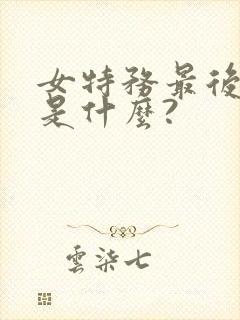 女特務最後
是什麼?
雲柒七